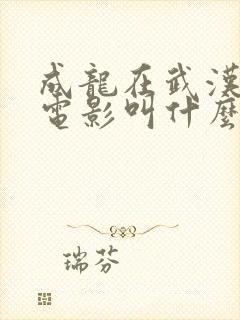 成龍在武漢
電影叫什麼
瑞芬